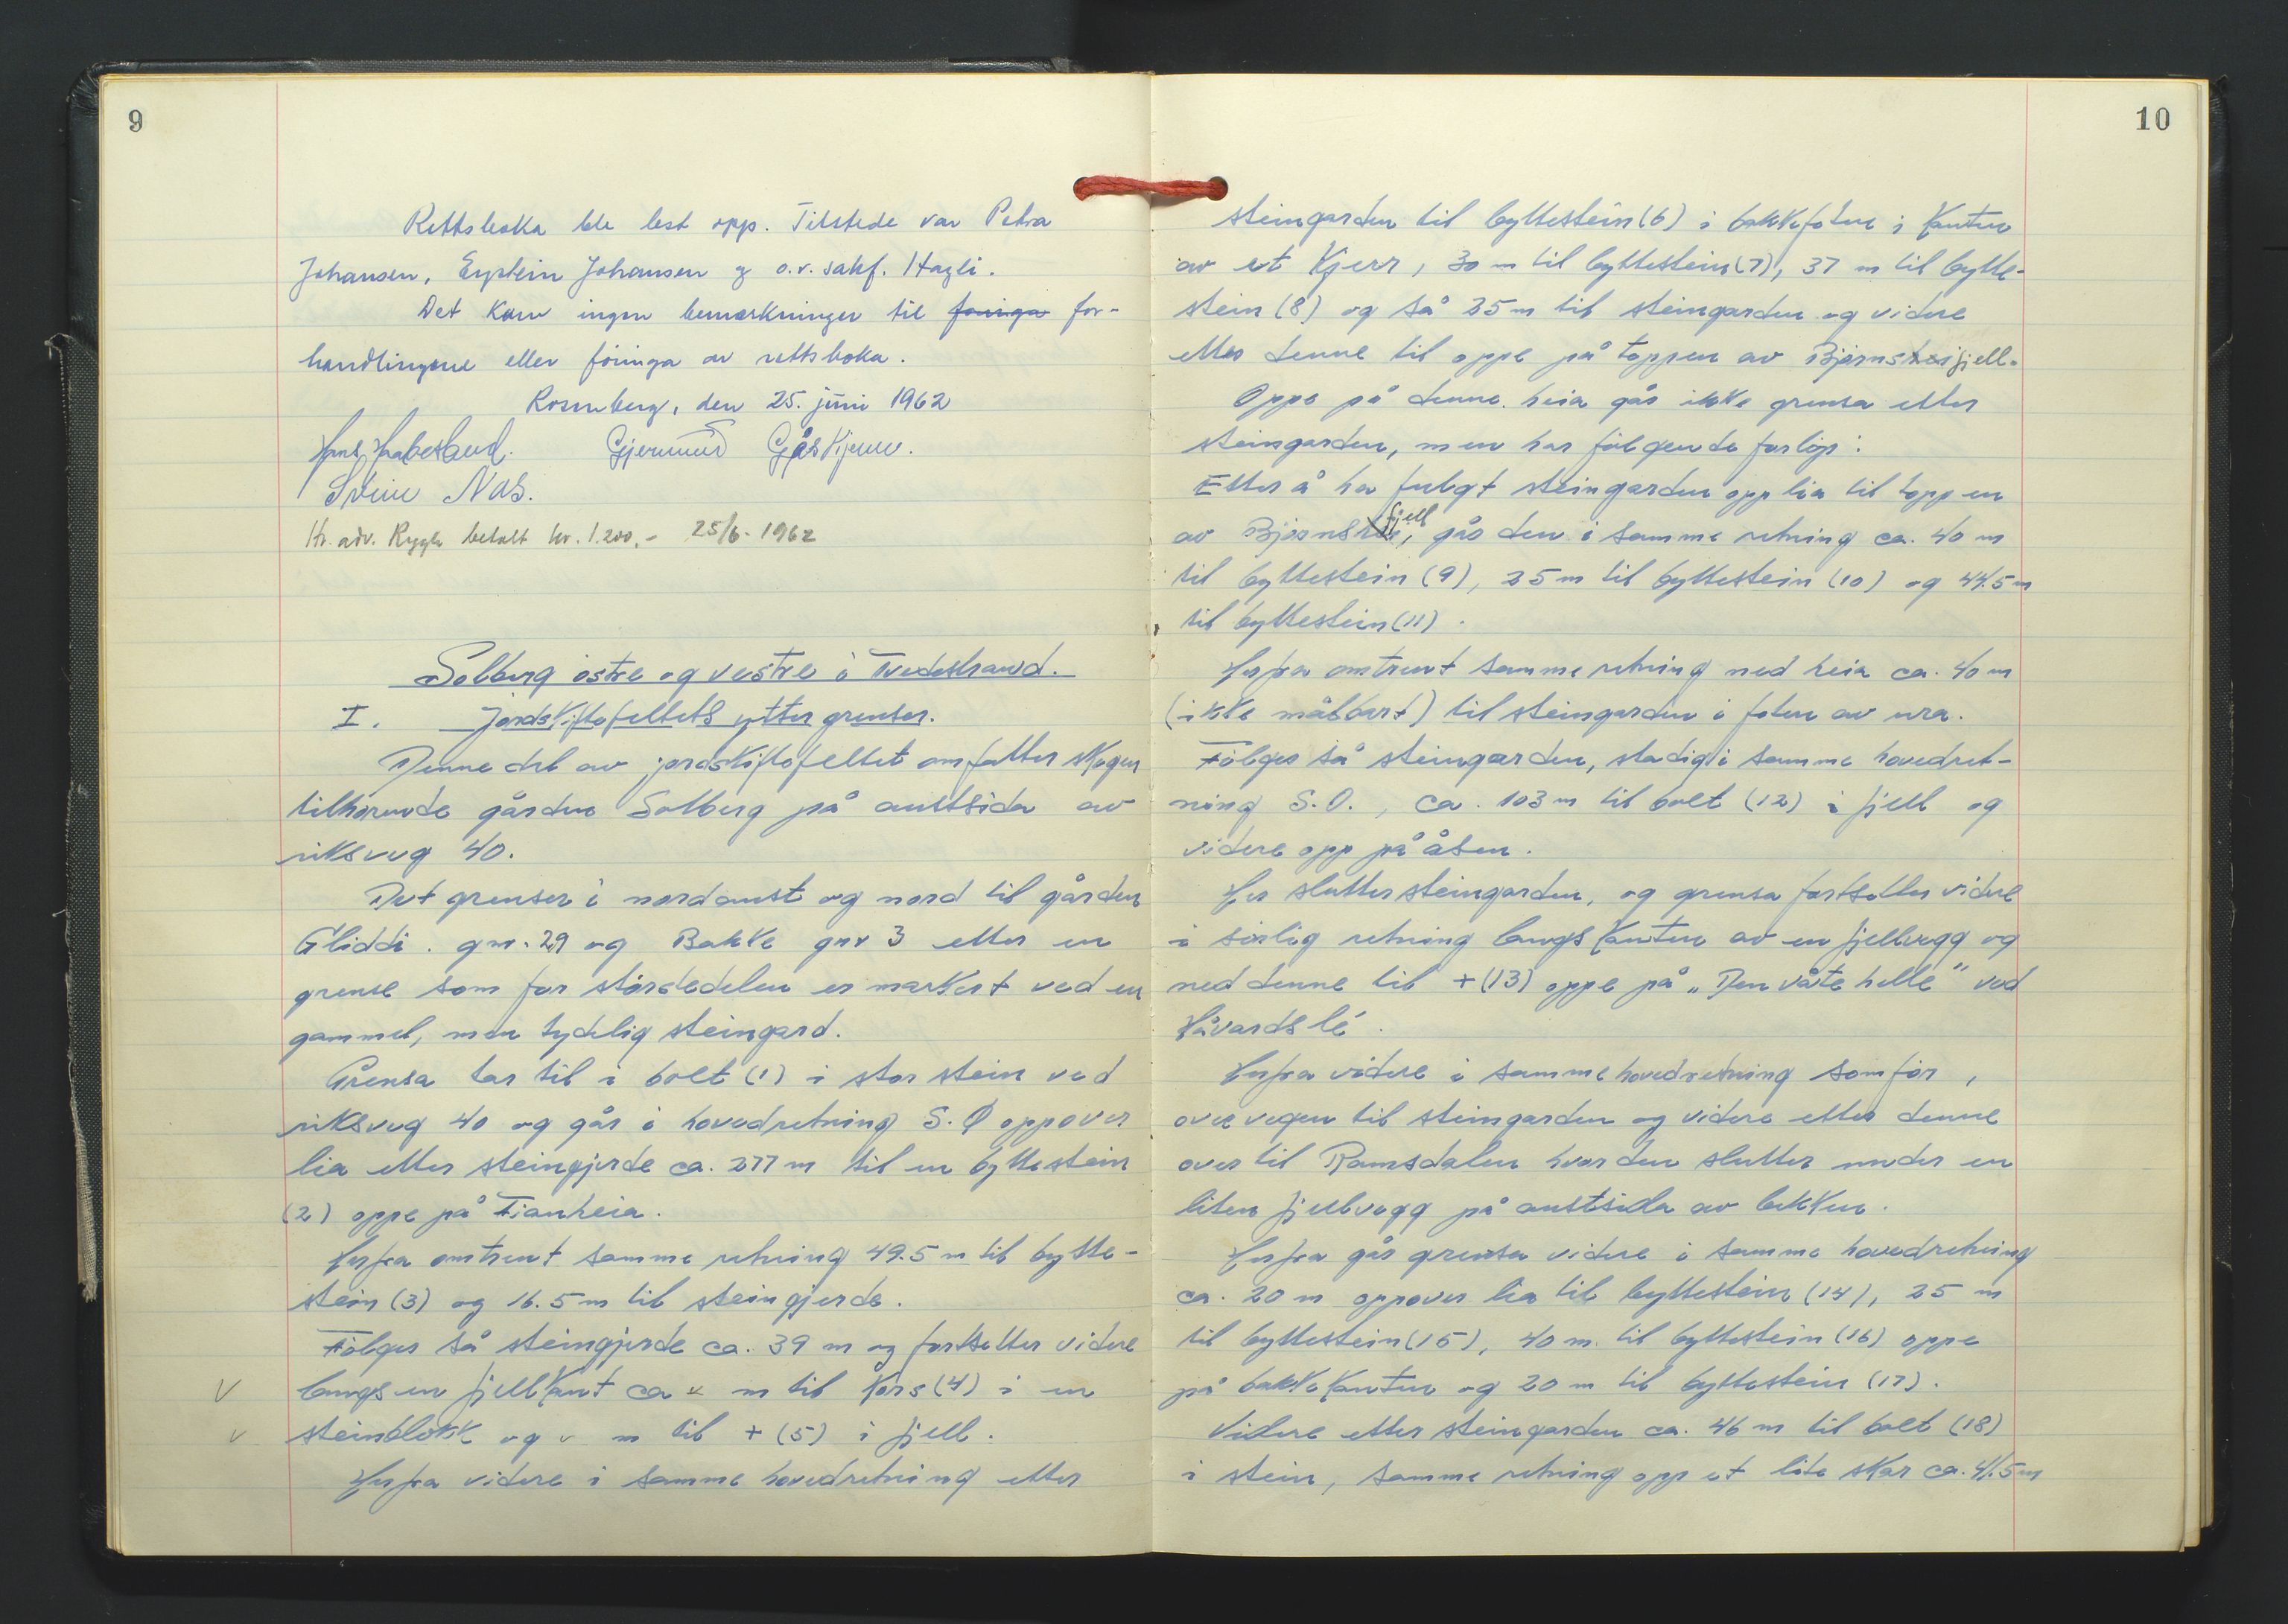 9
Rettsboka ble lest opp. Tilstede var Petra
Johansen, Eystein Johansen og o.r. sakf. Hagli.
Det kom ingen bemerkninger til föringa for-
handlingene eller föringa av rettsboka.
Rosenberg, den 25. juni 1962
Gjermund Gåskjenn.
Svein Nas.
Hr. adv. Rygh betalt kr. 1.200.- 25/6-1962
Solberg östre og vestre i Tvedestrand.
I. Jordskiftefeltets yttergrenser.
Denne del av jordskiftefeltet omfatter skogen
tilhörende gården Solberg på austsida av
riksveg 40.
Det grenser i nordaust og nord til gården
Gliddi. gnr. 29 og Bakke gnr 3 etter en
grense som for störstedelen er markert ved en
gammel, men tydelig steingard.
Grensa tar til i bolt (1) i stor stein ved
riksveg 40 og går i hovedretning S.Ø oppover
lia etter steingjerde ca. 277 m til en byttestein
(2) oppe på Fianheia.
Herfra omtrent samme retning 49.5 m til bytte-
stein (3) og 16.5 m til steingjerde.
Fölger så steingjerde ca. 39 m og fortsetter videre
V langs en fjellkant ca v m til kors (4) i en
v steinblokk og v m til + (5) i fjell.
Herfra videre i samme hovedretning etter
10
steingarden til byttestein (6) i bakkefoten i kanten
av et kjerr, 30 m til byttestein (7), 37 m til bytte-
stein (8) og så 35 m til steingarden og videre
etter denne til oppe på toppen av Bjørnsheifjell.
Oppe på denne heia går ikke grensa etter
steingarden, men har fölgende forlöp:
Etter å ha fulgt steingarden opp lia til toppen
fjell
av Bjørns, går den i samme retning ca. 40 m
til byttestein (9), 25 m til byttestein (10) og 44.5 m
til byttestein (11).
Herfra omtrent samme retning ned heia ca. 40 m
(ikke målbart) til steingarden i foten av ura.
Fölger så steingarden, stadig i samme hovedret-
ning S.O., ca. 103 m til bolt (12) i fjell og
videre opp på åsen.
Her slutter steingarden, og grensa fortsetter videre
i sörlig retning langs kanten av en fjellrygg og
ned denne til + (13) oppe på "Den våte helle" ved
Håvardslé.
Herfra videre i samme hovedretning som för,
over vegen til steingarden og videre etter denne
over til Ramsdalen hvor den slutter under en
liten fjellvegg på austsida av bekken.
Herfra går grensa videre i samme hovedretning
ca. 20 m oppover lia til byttestein (14), 25 m
til byttestein (15), 40 m til byttestein (16) oppe
på bakkekanten og 20 m til byttestein (17).
Videre etter steingarden ca. 46 m til bolt (18)
i stein, samme retning opp et lite skar ca. 41.5 m